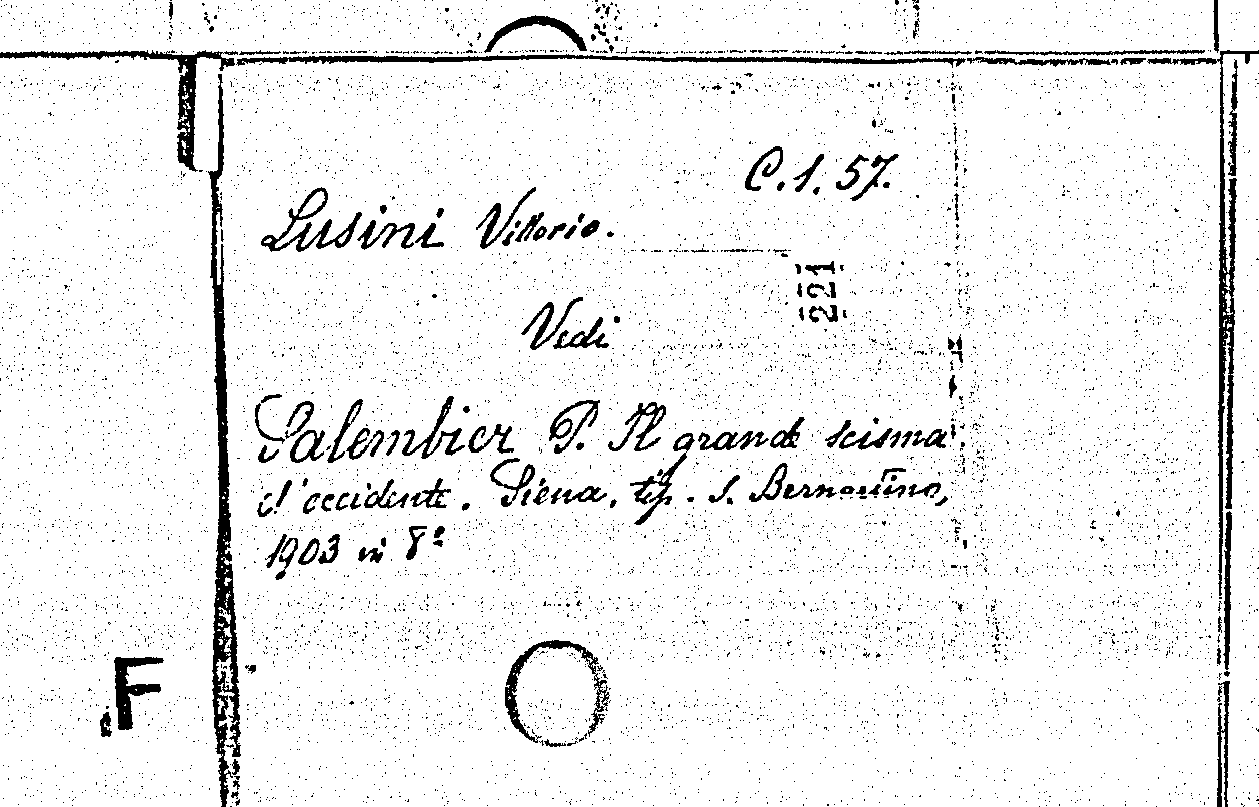 C.1.57.
Lusini Vittorio.
221
Vedi
Salembier P. Il grande scisma
d'occidente. Siena, tip. S. Bernardino,
1903 in 8º
F